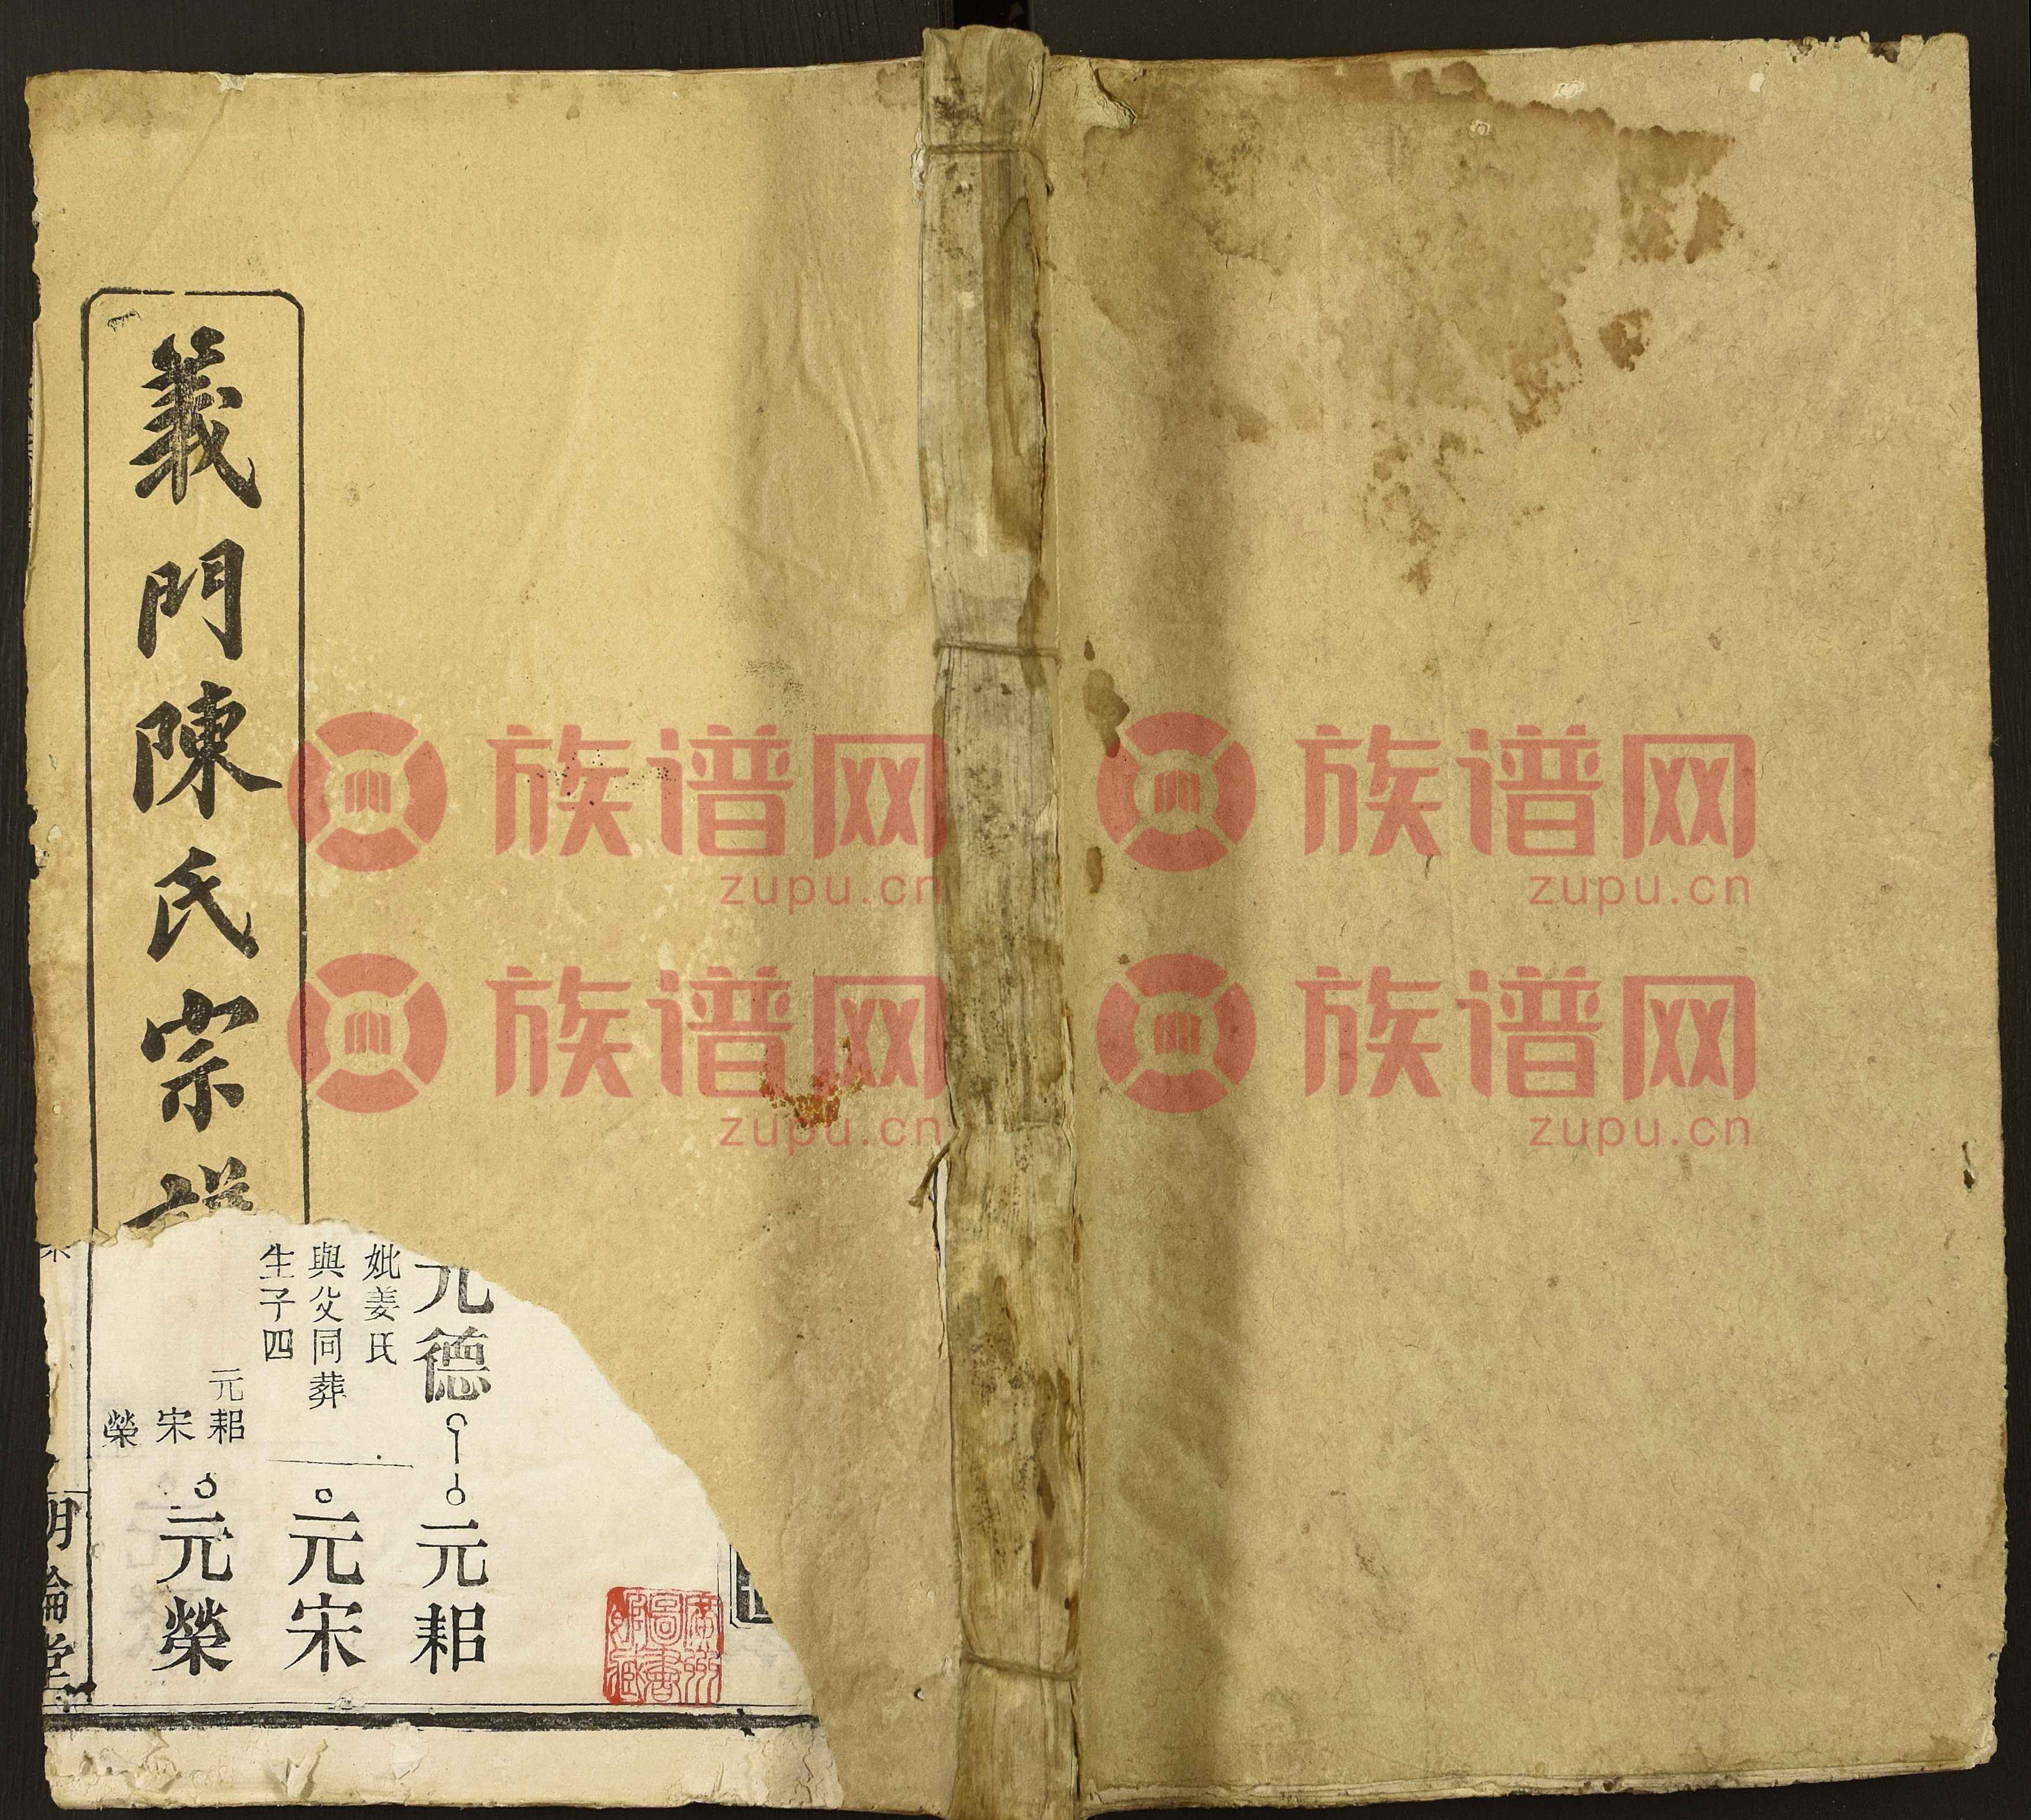 義門陳氏宗譜
元德
元耜
妣姜氏
與父同葬
生子四
元耜
宋
榮
元宋
元榮
明倫堂
廣州
圖書
館藏
族谱网
zupu.cn
族谱网
zupu.cn
族谱网
zupu.cn
族谱网
zupu.cn